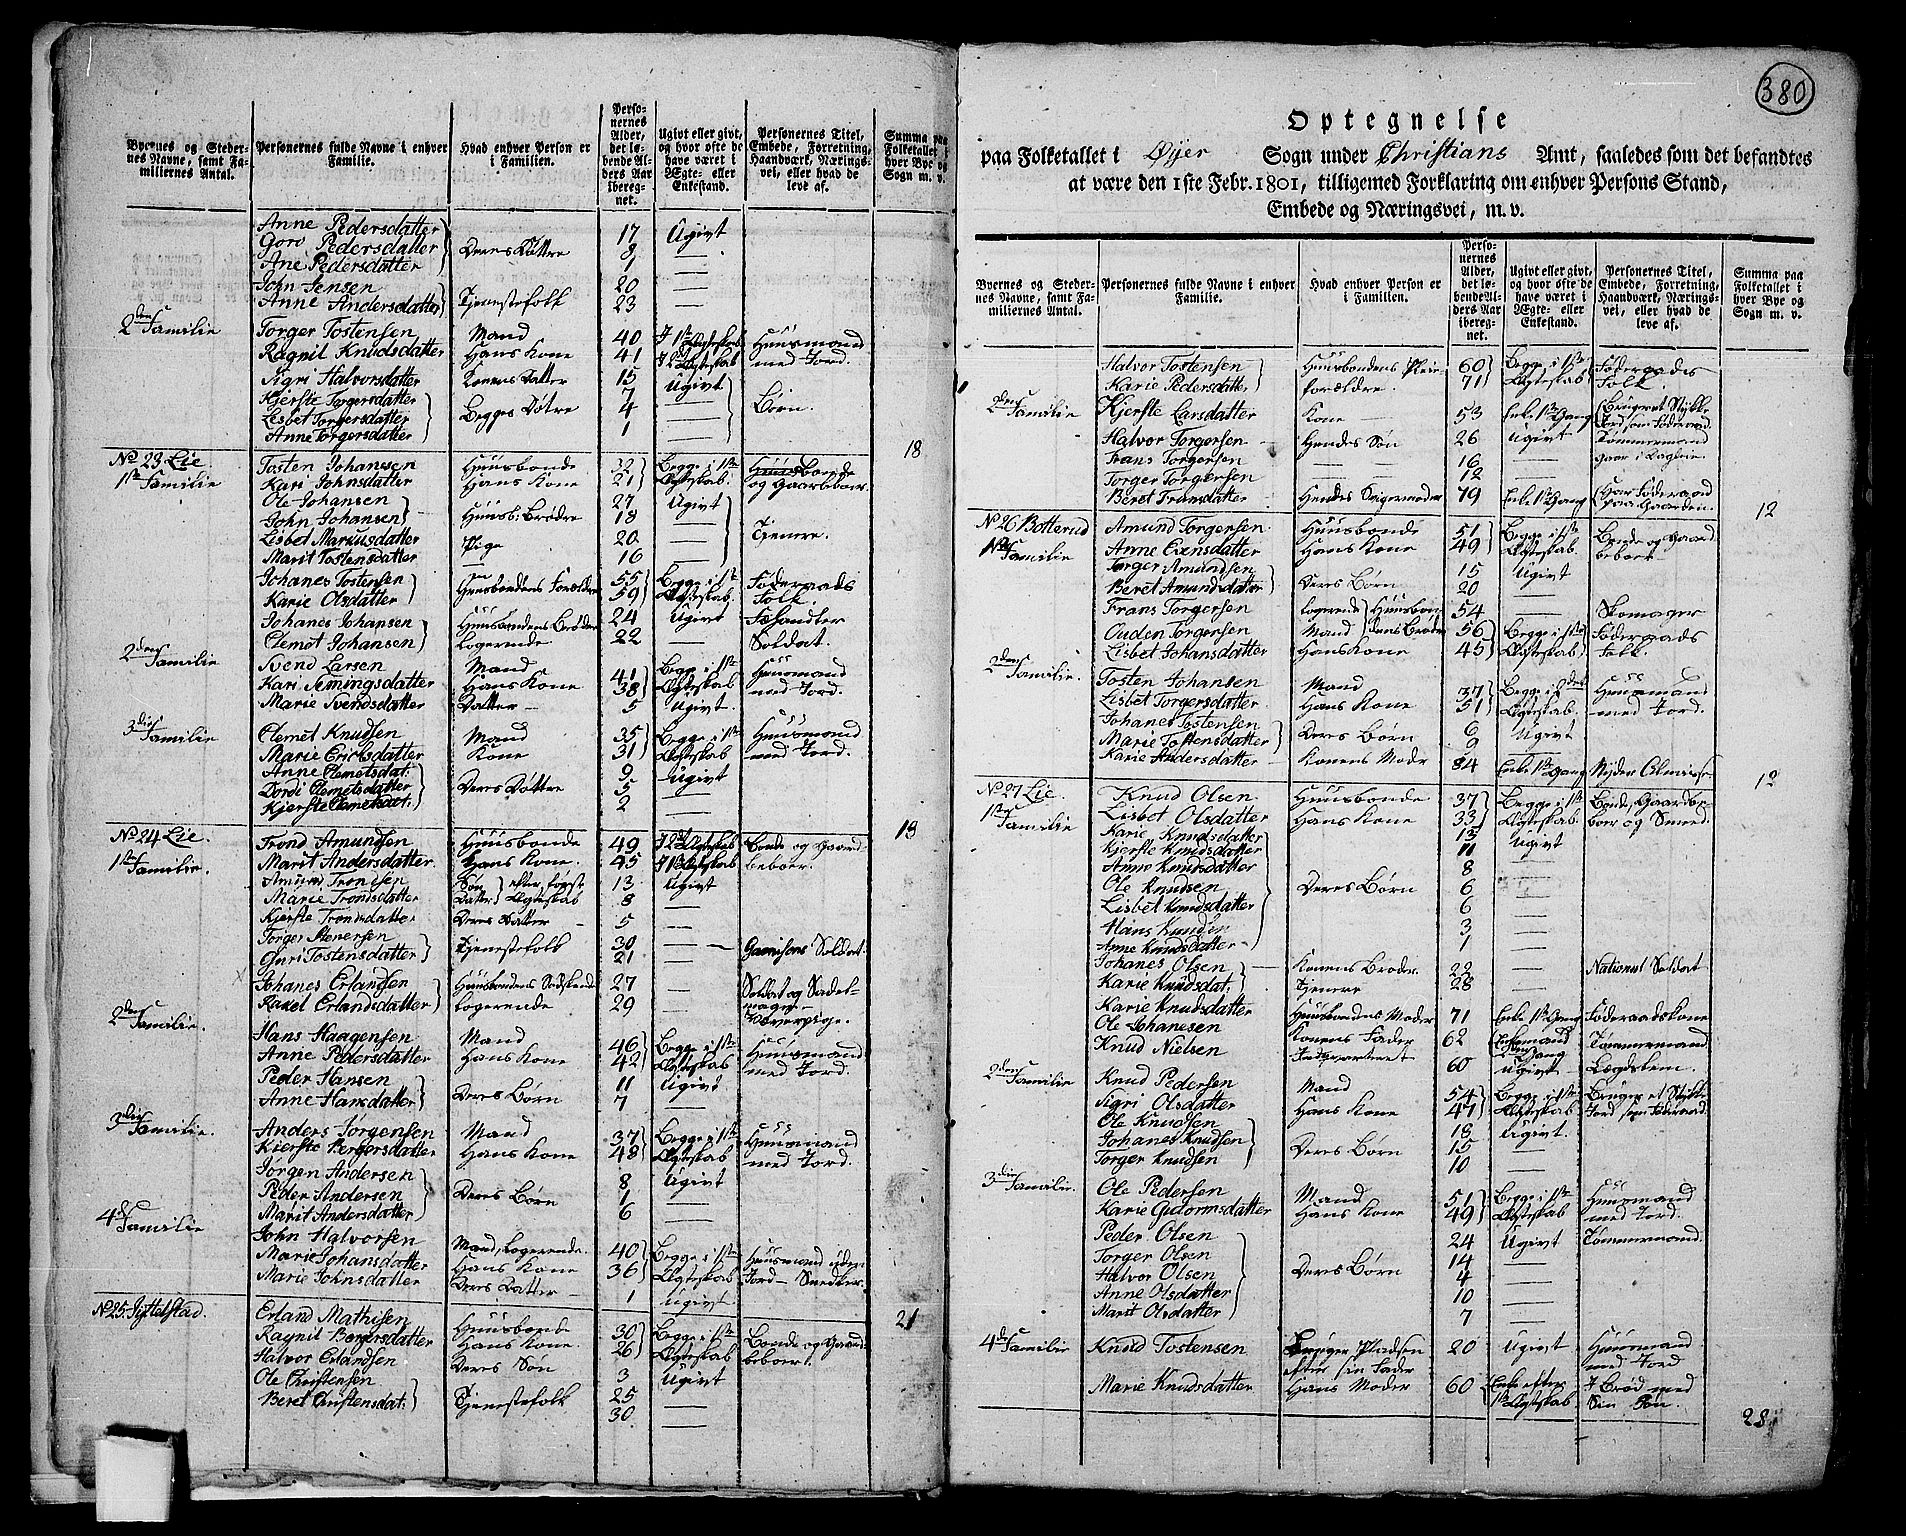 Byernes og Stedernes Navne, samt Familiernes Antal.
Personernes fulde Navne i enhver Familie.
Hvad enhver Person er i Familien.
Personernes Alder, det løbende Alders Aar iberegnet.
Ugivt eller givt, og hvor ofte de have været i Ægte- eller Enkestand.
Personernes Titel, Embede, Forretning, Haandværk, Næringsvei, eller hvad de leve af.
Summa paa Folketallet i hver Bye og Sogn m. v.
Anne Pedersdatter 17 Ugivt
Goro Pedersdatter Deres Døttre 8 —
Ane Pedersdatter 1 —
John Jensen 20 —
Anne Andersdatter Tjenestefolk 23 —
2den Familie Torger Tostensen Mand 40 I 1ste Ægteskab Huusmand
Ragnil Knudsdatter Hans Kone 41 I 2 Ægteskab med Jord.
Sigri Halvorsdatter Konens Datter 15 Ugivt
Kjerste Torgersdatter 7 —
Lisbet Torgersdatter Begges Døtre 4 — Børn.
Anne Torgersdatter 1 —
18
No 23 Lie.
1ste Familie Tosten Johansen Huusbonde 32 Begge i 1ste Bonde
Kari Johnsdatter Hans Kone 21 Ægteskab. og Gaardbeboer.
Ole Johansen 27 Ugivt
John Johansen Huusb: Brødre 18 —
Lisbet Markusdatter Pige 20 — Tjenere.
Marit Tostensdatter — 16 —
Johanes Tostensen Huusbondens Forældre 55 Begge i 1ste Føderaads
Karie Olsdatter 59 Ægteskab. Folk.
Johanes Johansen Huusbondens Brødre 24 Ugivt Fæhandler
Clemet Johansen Logerende 22 — Soldat.
2den Familie Svend Larsen Mand 41 Begge i 1ste Huusmand
Kari Semingsdatter Hans Kone 38 Ægteskab med Jord.
Marie Svendsdatter Datter — 5 Ugivt.
3die Familie Clemet Knudsen Mand 35 Begge i 1ste Huusmand
Marie Erichsdatter Kone 31 Ægteskab med Jord.
Anne Clemetsdat: 9 Ugivt
Dordi Clemetsdatter Deres Døttre 5 —
Kjerste Clemetsdat: 2 —
18
No 24 Lie.
1ste Familie. Trond Amundsen Huusbonde 49 I 2det Ægteskab Bonde og Gaard
Marit Andersdatter Hans Kone. 45 I 1ste Ægteskab beboer.
Amund Trondsen Søn efter første 13 Ugivt
Marie Trondsdatter Datter Ægteskab 8 —
Kjerste Trondsdatter Deres Datter 5 —
Torger Stenersen Tjenestefolk 30 — Garnisons Soldat.
Guri Tostensdatter 21 —
Johanes Erlandsen Huusbondens Sødskend 27 — Soldat og Sadel
Raxel Erlandsdatter Logerende 29 — mager
Væverpige.
2den Familie. Hans Haagensen Mand 46 Begge i 1ste Huusmand
Anne Pedersdatter Hans Kone 42 Ægteskab med Jord.
Peder Hansen 11 Ugivt
Anne Hansdatter Deres Børn 7 —
3die Familie. Anders Jørgensen Mand 37 Begge i 1ste Huusmand
Kjerste Bergersdatter Hans Kone 48 Ægteskab med Jord.
Jørgen Andersen 8 Ugivt
Peder Andersen Deres Børn 1 —
Marit Andersdatter 6 —
4de Familie John Halvorsen Mand, Logerende. 40 Begge i 1ste Huusmand uden
Marie Johansdatter Hans Kone 36 Ægteskab Jord —
Marie Johnsdatter Deres Datter — 1 Ugivt
21
No 25. Erland Mathisen Huusbonde 30 Begge i 1ste Bonde og Gaard
Ragnil Bergersdatter Hans Kone. 26 Ægteskab beboer.
Halvor Erlandsen Deres Søn 3 Ugivt
Ole Christensen Tjenestefolk 25 —
Beret Christensdat: 30 —
380
Optegnelse
paa Folketallet i Øyer Sogn under Christians Amt, saaledes som det befandtes
at være den 1ste Febr. 1801, tilligemed Forklaring om enhver Persons Stand,
Embede og Næringsvei, m. v.
Byernes og Stedernes Navne, samt Familiernes Antal.
Personernes fulde Navne i enhver Familie.
Hvad enhver Person er i Familien.
Personernes Alder, det løbende Alders Aar iberegnet.
Ugivt eller givt, og hvor ofte de have været i Ægte- eller Enkestand.
Personernes Titel, Embede, Forretning, Haandværk, Næringsvei, eller hvad de leve af.
Summa paa Folketallet i hver Bye og Sogn m. v.
Halvor Tostensen Huusbondens Pleie 60 Begge i 1ste Føderaads
Karie Pedersdatter forældre. 71 Ægteskab Folk.
2den Familie Kjerste Larsdatter Kone — 53 Enke 1ste Gang Bruger et Stykke
Jord som Føderaad
Halvor Torgersen Hendes Søn 26 Ugivt Tømmermand
Frans Torgersen — — 16 — gaar i Dagleie.
Torger Torgersen — — 12 —
Beret Fransdatter Hendes Svigermoder 79 Enke 1ste Gang Har Føderaad
paa Gaarden.
12
No 26 Botterud Amund Torgersen Huusbonde 51 Begge i 1ste Bonde og Gaard
1ste Familie Anne Evensdatter Hans Kone 49 Ægteskab. beboer
Torger Amundsen Deres Børn 15 Ugivt
Beret Amundsdatter 20 —
Frans Torgersen Logerende Huusbon 54 — Skomager
Ouden Torgersen Mand dens Brødre 56 Begge i 1ste Føderaads
Lisbet Johansdatter Hans Kone 45 Ægteskab Folk.
2den Familie. Tosten Johansen Mand 37 Begge i 2det Huusmand
Lisbet Torgersdatter Hans Kone 51 Ægteskab. med Jord.
Johanes Tostensen 6 Ugivt
Marie Tostensdatter Deres Børn 9 —
Karie Andersdatter Konens Moder 84 Enke 1ste Gang Nyder Almisse
12
No 27 Lie. Knud Olsen Huusbonde 37 Begge i 1ste Bonde, Gaardbe
1ste Familie Lisbet Olsdatter Hans Kone 33 Ægteskab. boer og Smed.
Karie Knudsdatter 13 Ugivt
Kjerste Knudsdatter 11 —
Anne Knudsdatter 8 —
Ole Knudsen Deres Børn 6 —
Lisbet Knudsdatter 6 —
Hans Knudsen 3 —
Anne Knudsdatter 1 —
Johanes Olsen Konens Broder 22 — National Soldat
Karie Knudsdat: Tjenere 28 —
Karie Knudsdatter Huusbondens Moder 71 Enke 1ste Gang Føderaadskone
Ole Johanesen Konens Fader 62 Enkemand Tømmermand.
Gang
Knud Nielsen 60 Ugivt Lægdslem.
2den Familie Knud Pedersen Mand 54 Begge i 1ste Bruger et Stykke
Sigri Olsdatter Hans Kone 47 Ægteskab Jord som Føderaad.
Ole Knudsen 18 Ugivt.
Johanes Knudsen Deres Børn 15 —
Torger Knudsen 10 —
3die Familie. Ole Pedersen Mand 51 Begge i 1ste Huusmand
Karie Gudormsdatter Hans Kone 49 Ægteskab med Jord.
Peder Olsen 24 Ugivt Tømmermand.
Torger Olsen 14 —
Halvor Olsen Deres Børn 4 —
Anne Olsdatter 10 —
Marit Olsdatter 7 —
4de Familie Knud Tostensen Bruger Pladsen 20 Ugivt Huusmand
efter sin Fader med Jord.
Marie Knudsdatter Hans Moder 60 Enke efter I Brød med
1ste Ægteskab Sin Søn.
28